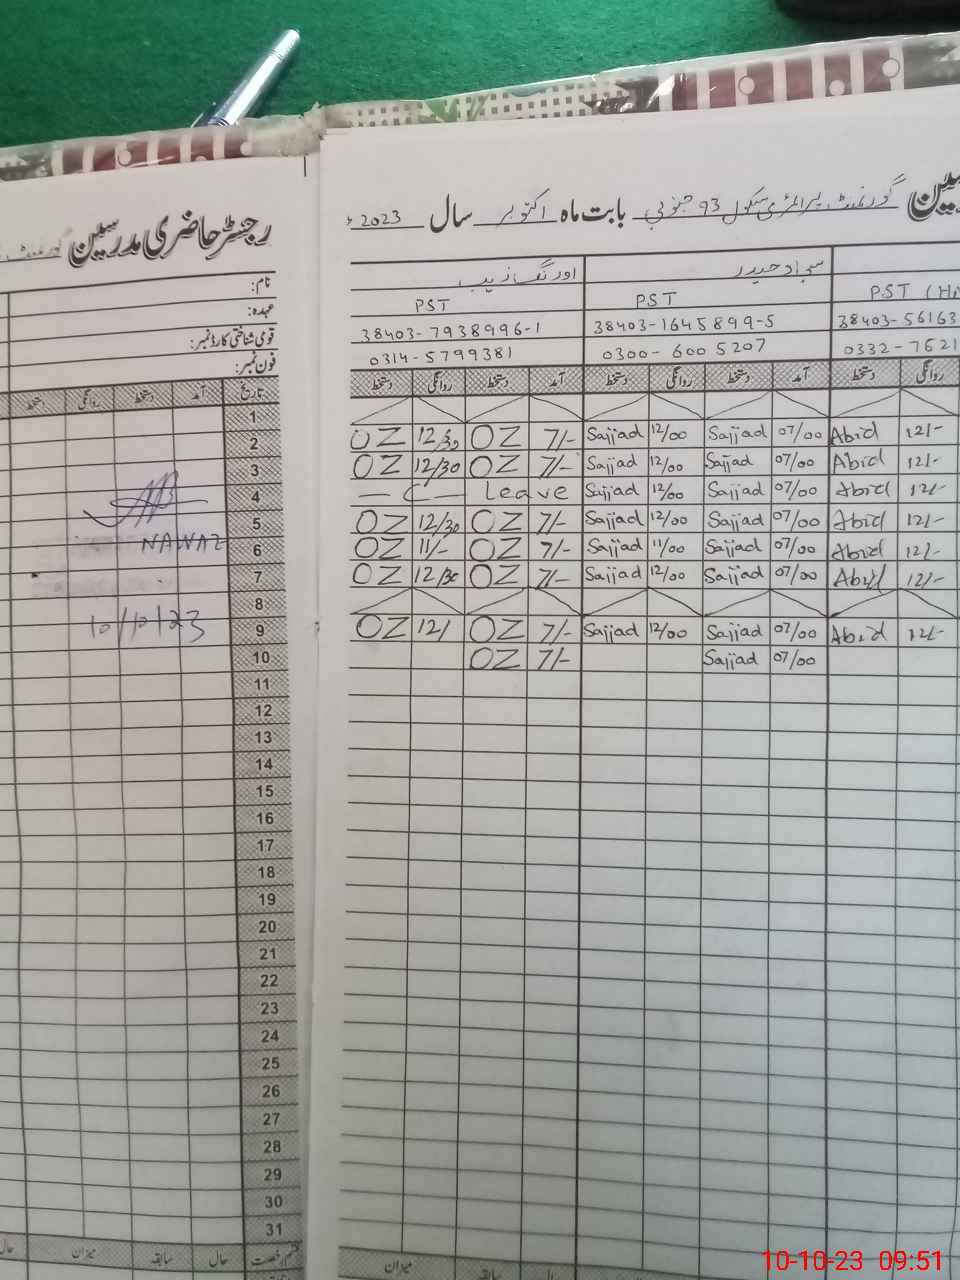 رجسٹر حاضری مدرسین
گورنمنٹ پرائمری سکول 93 جنوبی بابت ماہ اکتوبر سال 2023ء
نام:
عہدہ:
قومی شناختی کارڈ نمبر:
فون نمبر:
تاریخ آمد دستخط روانگی دستخط
سجاد حیدر اورنگزیب
PST PST
38403-56163 38403-1645899-5 38403-7938996-1
0332-7621 0300-6005207 0314-5799381
روانگی دستخط آمد دستخط روانگی دستخط آمد دستخط روانگی دستخط
1
2 OZ 12/30 OZ 7/- Sajjad 12/00 Sajjad 07/00 Abid 12/-
3 OZ 12/30 OZ 7/- Sajjad 12/00 Sajjad 07/00 Abid 12/-
4 — C — Leave Sajjad 12/00 Sajjad 07/00 Abid 12/-
5 OZ 12/30 OZ 7/- Sajjad 12/00 Sajjad 07/00 Abid 12/-
6 OZ 11/- OZ 7/- Sajjad 11/00 Sajjad 07/00 Abid 12/-
7 OZ 12/30 OZ 7/- Sajjad 12/00 Sajjad 07/00 Abid 12/-
8
9 OZ 12/ OZ 7/- Sajjad 12/00 Sajjad 07/00 Abid 12/-
10 OZ 7/- Sajjad 07/00
NAWAZ
10/10/23
11
12
13
14
15
16
17
18
19
20
21
22
23
24
25
26
27
28
29
30
31
حال سابقہ میزان حال
میزان سابقہ
10-10-23 09:51